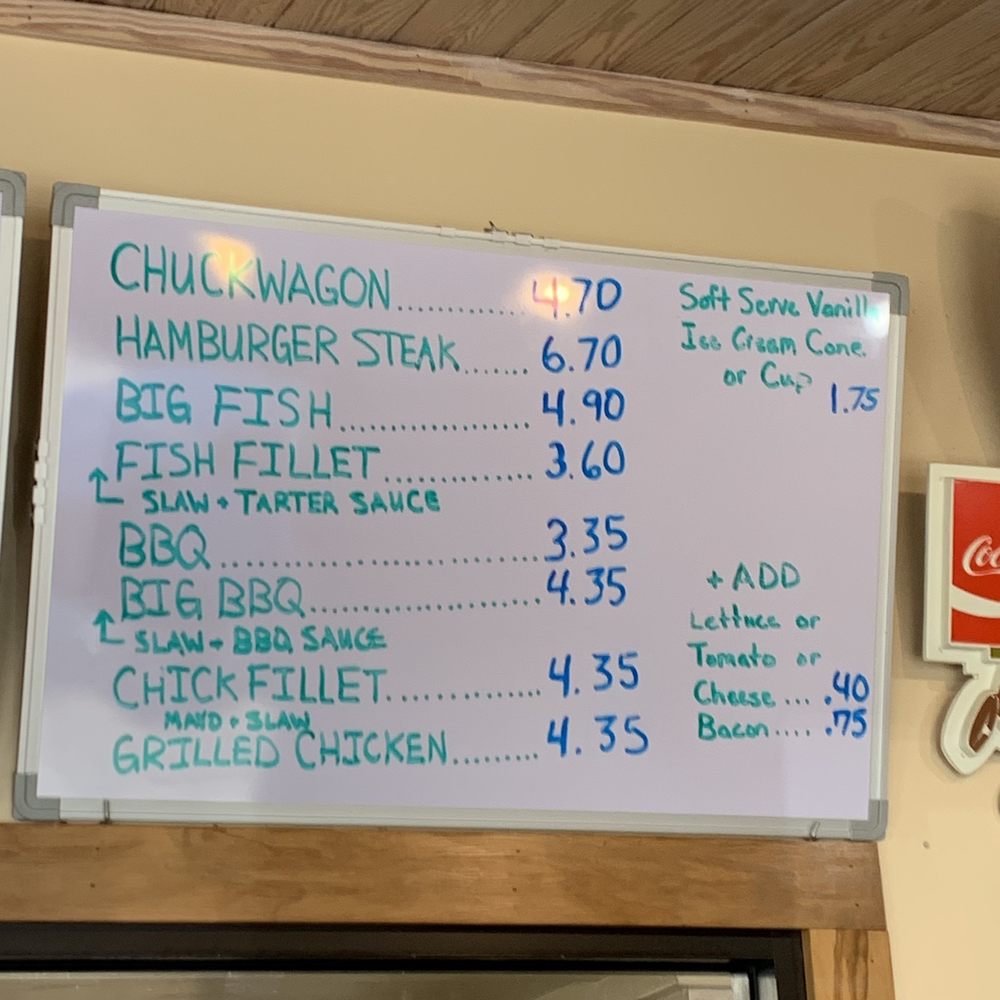 CHUCKWAGON.............. 4.70
HAMBURGER STEAK....... 6.70
BIG FISH.................. 4.90
FISH FILLET.............. 3.60
SLAW + TARTER SAUCE
BBQ........................... 3.35
BIG BBQ..................... 4.35
SLAW + BBQ SAUCE
CHICK FILLET............... 4.35
MAYO + SLAW
GRILLED CHICKEN......... 4.35
Soft Serve Vanilla
Ice Cream Cone
or Cup
1.75
+ ADD
Lettuce or
Tomato or
Cheese.... .40
Bacon.... .75